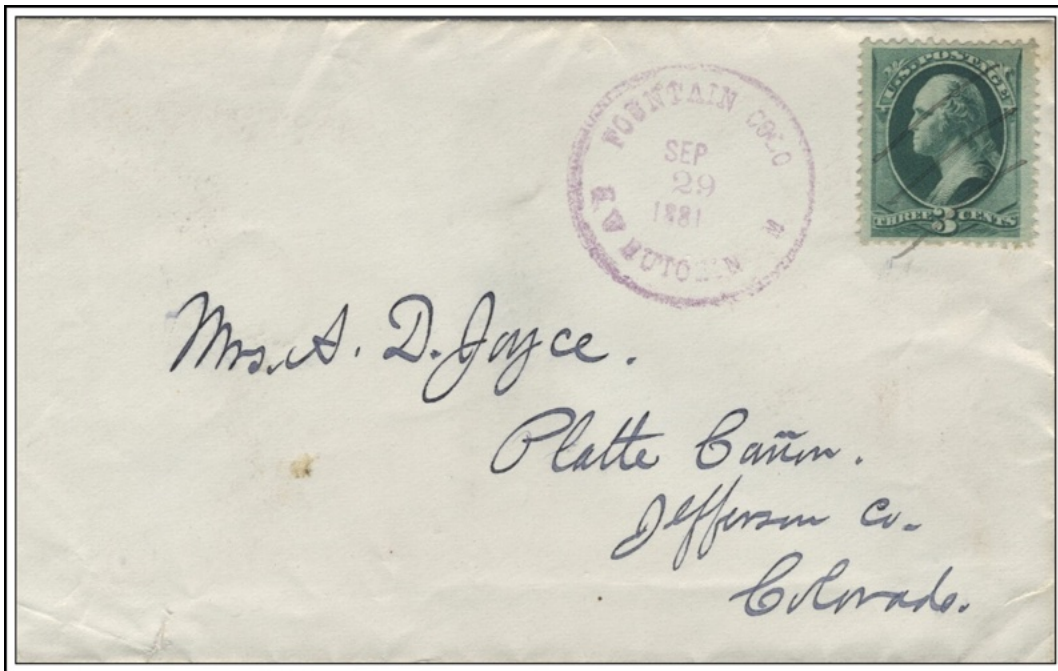 FOUNTAIN COLO
SEP
29
1881
U.S. POSTAGE
THREE 3 CENTS
Mrs. A. D. Joyce.
Platte Cañon.
Jefferson Co.
Colorado.